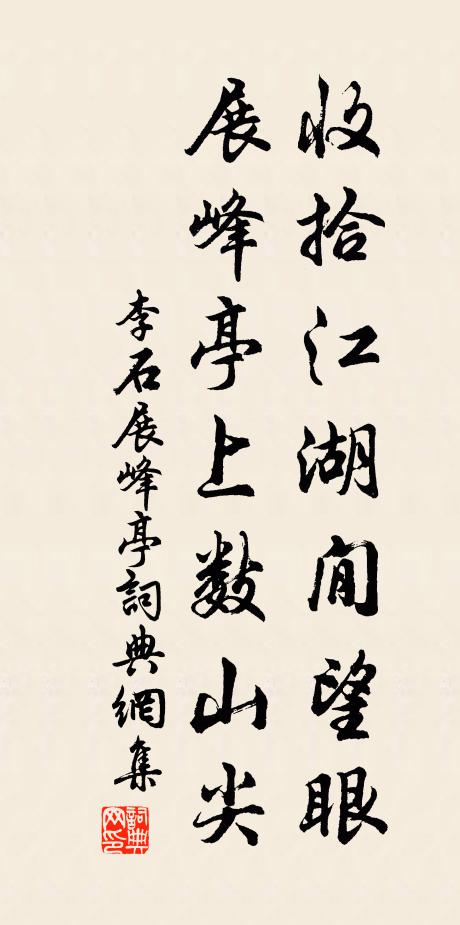 收拾江湖閒望眼
展峰亭上數山尖
李石展峰亭詞典網集
詞典網印